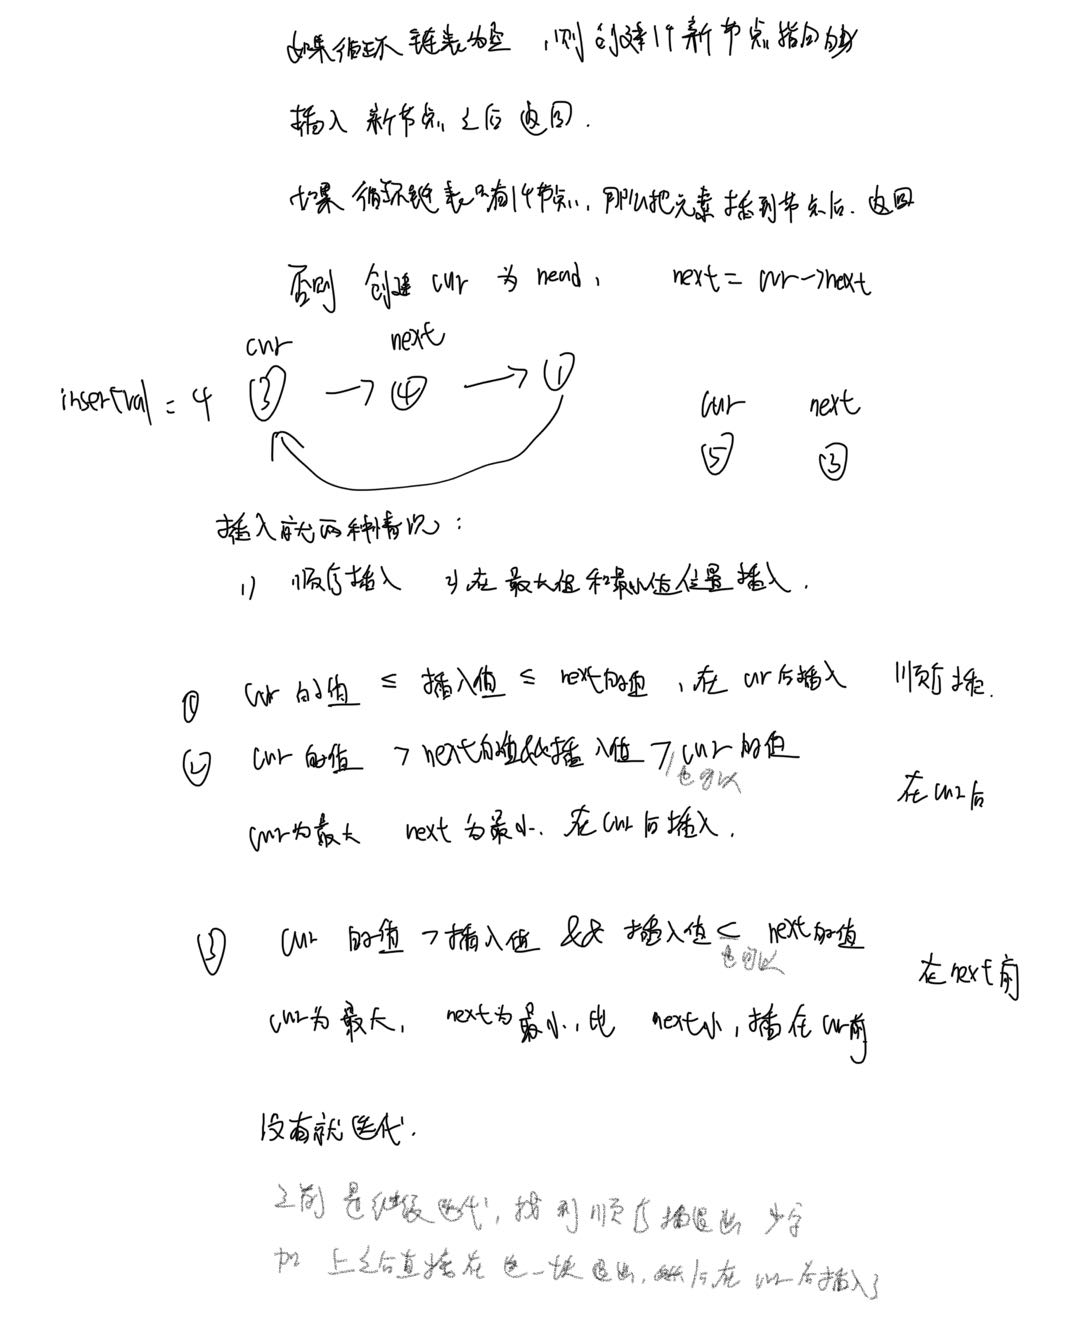 如果循环链表为空，则创建1个新节点指向自身
插入新节点之后返回.
如果循环链表只有1个节点，那么把元素插到节点后.返回
否则 创建 cur 为 head， next = cur->next
cur next
insertval = 4 ③ → ④ → ①
cur next
⑤ ③
插入就两种情况：
1) 顺序插入 2) 在最大值和最小值位置插入.
① cur 的值 ≤ 插入值 ≤ next的值，在 cur后插入 顺序插.
② cur 的值 > next的值&&插入值 > cur 的值
也可以
在cur后
cur为最大 next为最小. 在cur后插入.
③ cur 的值 > 插入值 && 插入值 < next的值
也可以
在next前
cur为最大， next为最小，比 next小，插在cur前
没有就迭代.
之前是继续迭代，找到顺序插退出
加上之后直接在这一块退出，然后在cur后插入了